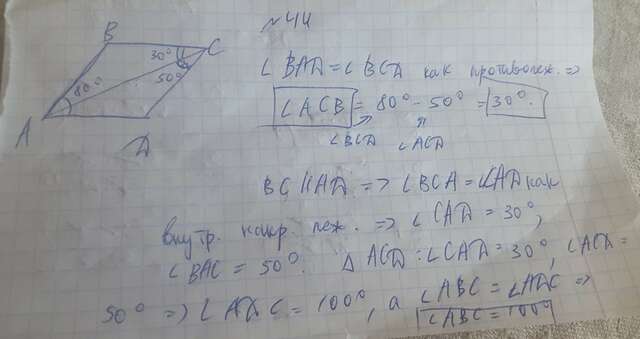 №44
B
30°
C
50°
80°
A
Д
∠BAД = ∠BCД как противолеж. =>
∠ACB = 80° - 50° = 30°.
∠BCД ∠ACД
BC || AД => ∠BCA = ∠CAД как
внутр. накр. леж. => ∠CAД = 30°,
∠BAC = 50°. Δ ACД : ∠CAД = 30°, ∠ACД =
50° => ∠AДC = 100°, а ∠ABC = ∠AДC =>
∠ABC = 100°